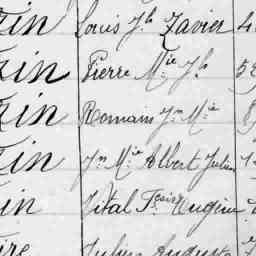 in Louis Jh Xavier 4
in Pierre Mie Jh 5
in Romain Jn Mie
in Jn Mie Albert Julien
in Vital Fçois Eugène
ire Julien Auguste